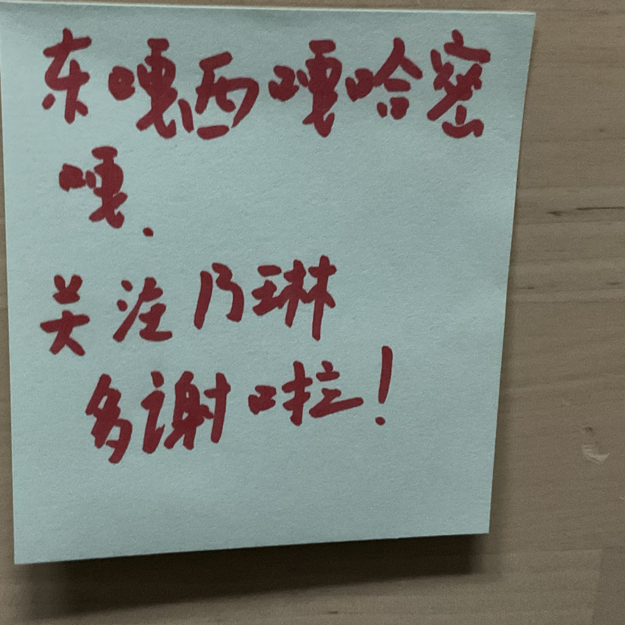 东嘎西嘎哈密
嘎.
关注乃琳
多谢啦！